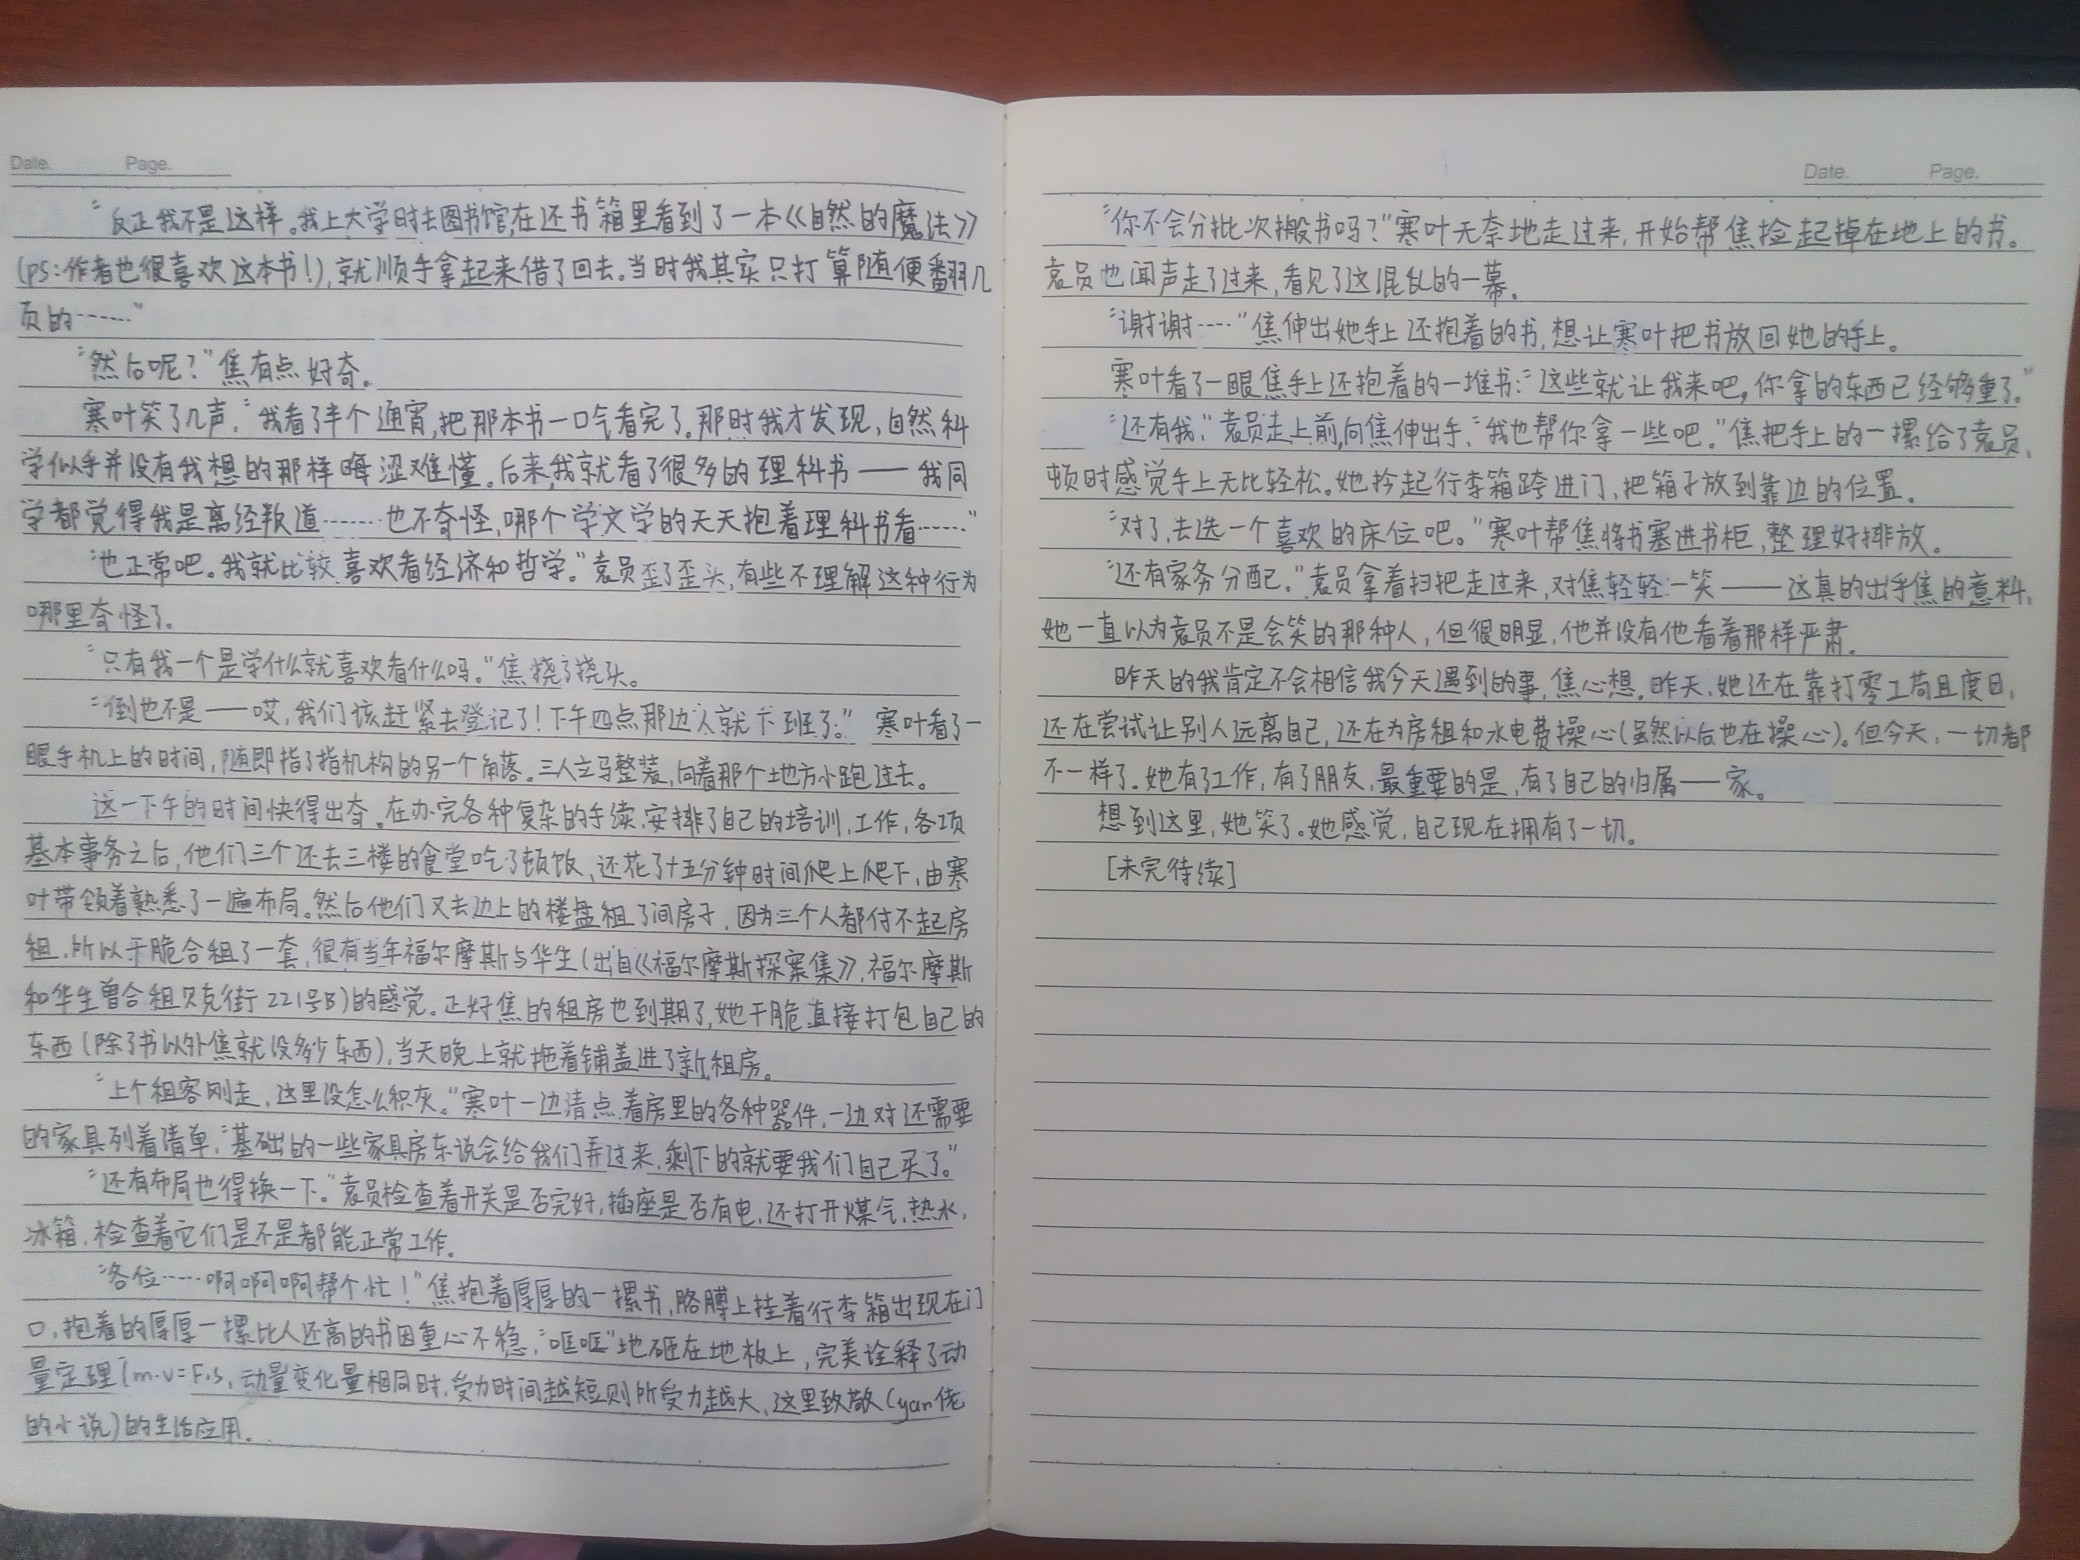 Date. Page.
“反正我不是这样。我上大学时去图书馆,在还书箱里看到了一本《自然的魔法》
(ps:作者也很喜欢这本书!),就顺手拿起来借了回去。当时我其实只打算随便翻几
页的……”
“然后呢?”焦有点好奇。
寒叶笑了几声:“我看了半个通宵,把那本书一口气看完了。那时我才发现,自然科
学似乎并没有我想的那样晦涩难懂。后来,我就看了很多的理科书——我同
学都觉得我是离经叛道……也不奇怪,哪个学文学的天天抱着理科书看……”
“也正常吧。我就比较喜欢看经济和哲学。”袁员歪了歪头,有些不理解这种行为
哪里奇怪了。
“只有我一个是学什么就喜欢看什么吗。”焦挠了挠头。
“倒也不是——哎,我们该赶紧去登记了!下午四点那边人就下班了。”寒叶看了一
眼手机上的时间,随即指了指机构的另一个角落。三人立马整装,向着那个地方小跑过去。
这一下午的时间快得出奇。在办完各种复杂的手续,安排了自己的培训,工作,各项
基本事务之后,他们三个还去三楼的食堂吃了顿饭,还花了十五分钟时间爬上爬下,由寒
叶带领着熟悉了一遍布局。然后他们又去边上的楼盘租了间房子,因为三个人都付不起房
租,所以干脆合租了一套,很有当年福尔摩斯与华生(出自《福尔摩斯探案集》,福尔摩斯
和华生曾合租贝克街221号B)的感觉。正好焦的租房也到期了,她干脆直接打包自己的
东西(除了书以外焦就没多少东西),当天晚上就拖着铺盖进了新租房。
“上个租客刚走,这里没怎么积灰。”寒叶一边清点着房里的各种器件,一边对还需要
的家具列着清单,“基础的一些家具房东说会给我们弄过来,剩下的就要我们自己买了。”
“还有布局也得换一下。”袁员检查着开关是否完好,插座是否有电,还打开煤气,热水,
冰箱,检查着它们是不是都能正常工作。
“各位……啊啊啊帮个忙!”焦抱着厚厚的一摞书,胳膊上挂着行李箱出现在门
口,抱着的厚厚一摞比人还高的书因重心不稳,“哐哐”地砸在地板上,完美诠释了动
量定理(m·v=F·s,动量变化量相同时,受力时间越短则所受力越大,这里致敬(yan佬
的小说)的生活应用。
Date. Page.
“你不会分批次搬书吗?”寒叶无奈地走过来,开始帮焦捡起掉在地上的书。
袁员也闻声走了过来,看见了这混乱的一幕。
“谢谢……”焦伸出她手上还抱着的书,想让寒叶把书放回她的手上。
寒叶看了一眼焦手上还抱着的一堆书:“这些就让我来吧,你拿的东西已经够重了。”
“还有我,”袁员走上前,向焦伸出手,“我也帮你拿一些吧。”焦把手上的一摞给了袁员,
顿时感觉手上无比轻松。她拎起行李箱跨进门,把箱子放到靠边的位置。
“对了,去选一个喜欢的床位吧。”寒叶帮焦将书塞进书柜,整理好排放。
“还有家务分配。”袁员拿着扫把走过来,对焦轻轻一笑——这真的出乎焦的意料,
她一直以为袁员不是会笑的那种人,但很明显,他并没有他看着那样严肃。
昨天的我肯定不会相信我今天遇到的事,焦心想。昨天,她还在靠打零工苟且度日,
还在尝试让别人远离自己,还在为房租和水电费操心(虽然以后也在操心)。但今天,一切都
不一样了。她有了工作,有了朋友,最重要的是,有了自己的归属——家。
想到这里,她笑了。她感觉,自己现在拥有了一切。
[未完待续]